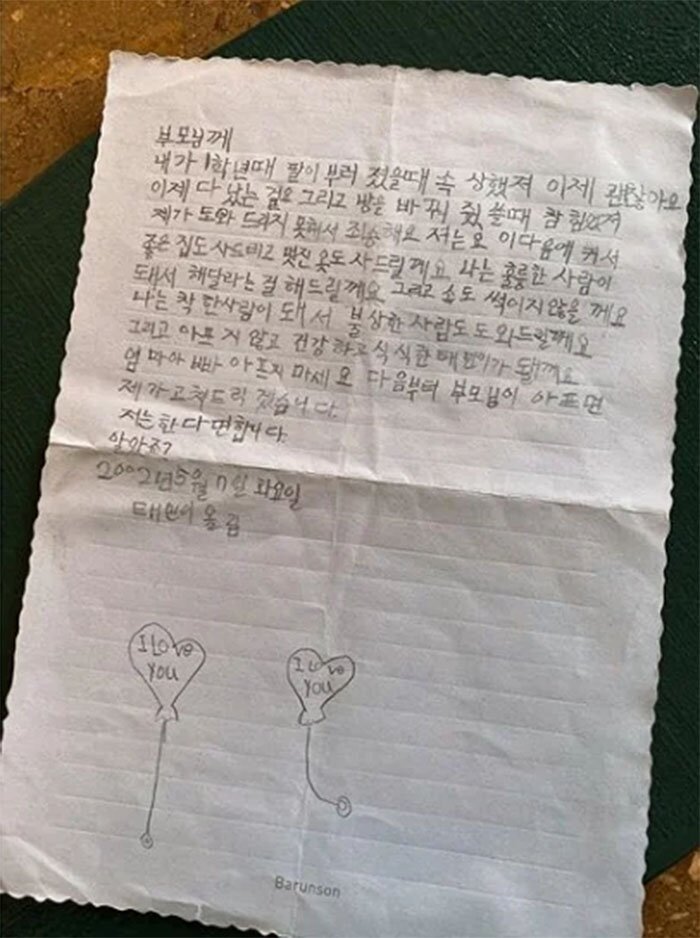 부모님께
내가 1학년때 팔이 부러 졌을때 속 상했져 이제 괜찮아요
이제 다 났는 걸요 그리고 방을 바꿔 줬 쓸때 참 힘었져
제가 도와 드리지 못해서 죄송해요 저는요 이다음에 커서
좋은 집도 사드리고 멋진 옷도 사 드릴께요 나는 훌륭한 사람이
돼서 해달라는 걸 해드릴께요 그리고 속도 썩이지않을 께요
나는 착한사람이 돼서 불상한 사람도 도와드릴께요
그리고 아프지 않고 건강하고 식식한 태민이가 될께요
엄마아빠 아프지 마세요 다음부터 부모님이 아프면
제가고쳐드리 겠습니다.
저는한다면합니다.
알아죠?
2002년5월 7일 화요일
태민이 올림
I Love
You
I Love
You
Barunson